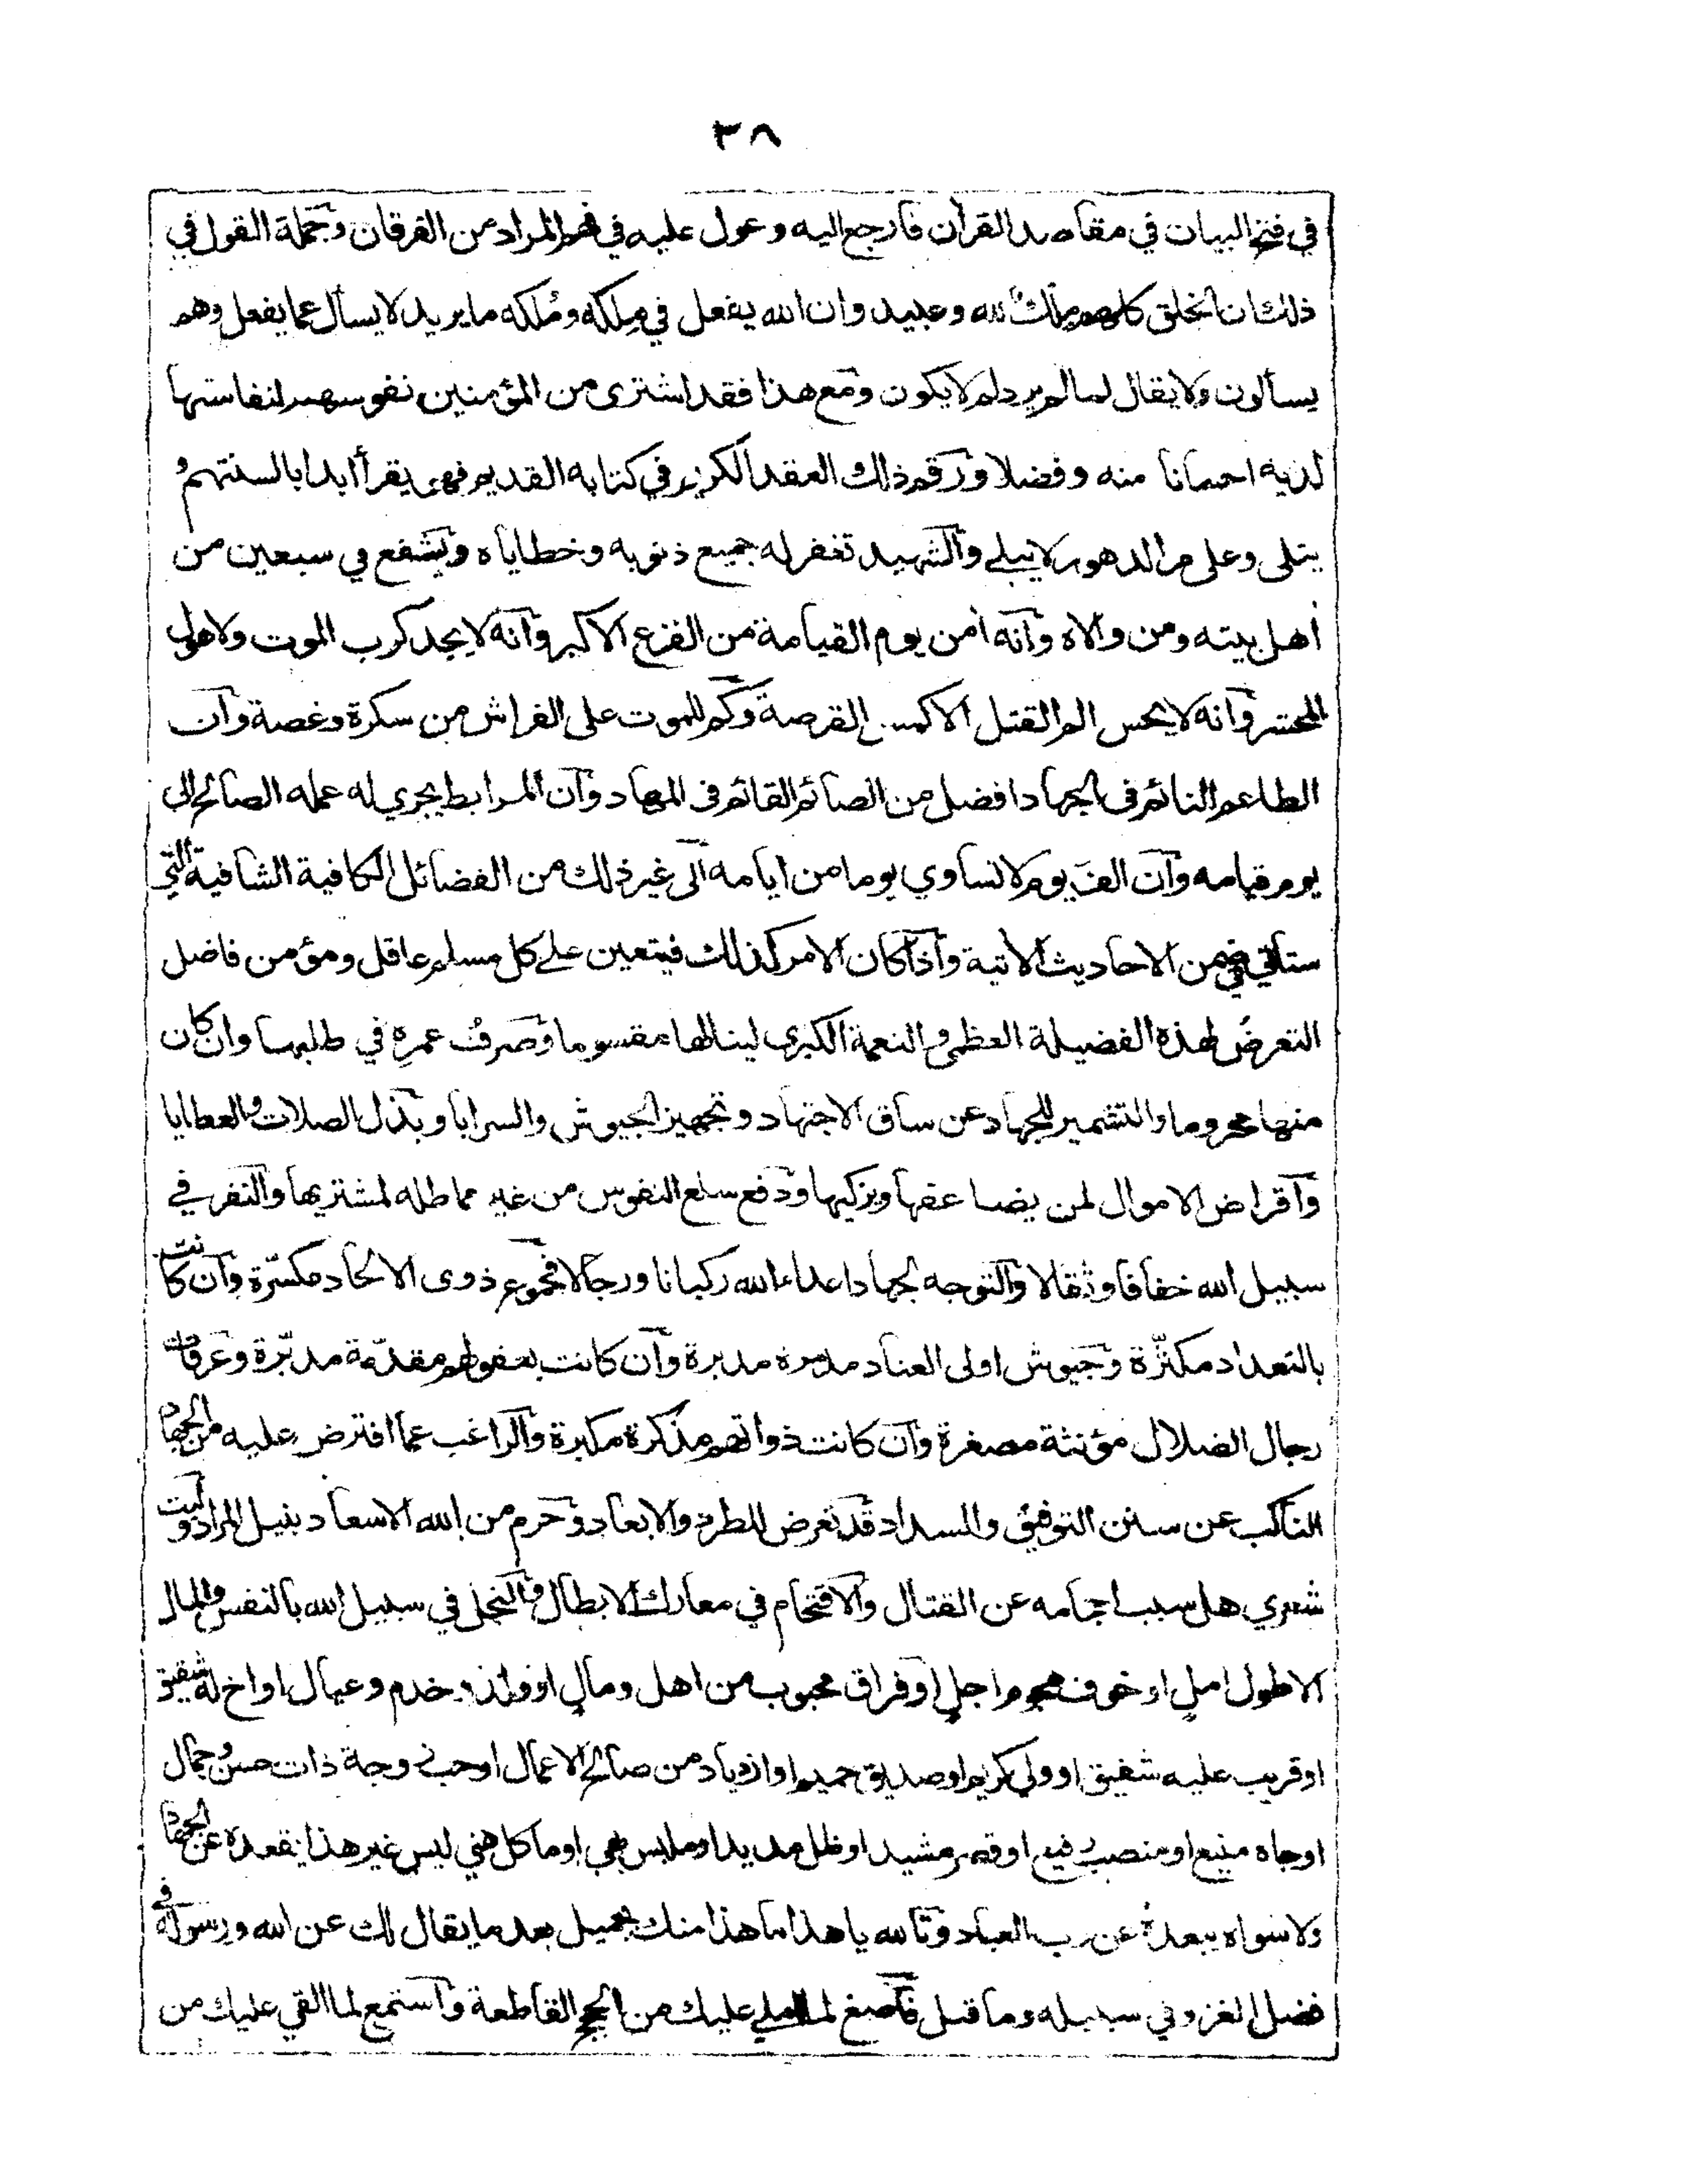 ٣٨
في فتح البيان في مقاصد القرآن فارجع اليه وعول عليه في فهم المراد من الفرقان وجملة القول في
ذلك ان الخلق كلهم ملك لله وعبيد وان الله يفعل في مِلكه ومُلكه ما يريد لا يسأل عما يفعل وهم
يسألون ولا يقال لما لم يرد لم لا يكون ومع هذا فقد اشترى من المؤمنين نفوسهم لنفاستها
لديه احسانا منه وفضلا ورقم ذلك العقد الكريم في كتابه القديم فهو يقرأ ابدا بالسنتهم و
يتلى وعلى مر الدهور لا يبلى والشهيد تغفر له جميع ذنوبه وخطاياه ويشفع في سبعين من
أهل بيته ومن والاه وانه أمن يوم القيامة من الفزع الاكبر وانه لا يجد كرب الموت ولا هول
المحشر وانه لا يحس الم القتل الا كمس القرصة وكم للموت على الفراش من سكرة وغصة وان
الطاعم النائم في الجهاد افضل من الصائم القائم في المهاد وان المرابط يجري له عمله الصالح الى
يوم قيامه وان الف يوم لا تساوي يوما من ايامه الى غير ذلك من الفضائل الكافية الشافية التي
ستأتي في ضمن الاحاديث الآتية واذا كان الامر كذلك فيتعين على كل مسلم عاقل ومؤمن فاضل
التعرضُ لهذه الفضيلة العظمى والنعمة الكبرى لينالها مقسوما وصرفُ عمرِه في طلبها وان كان
منها محروما والتشمير للجهاد عن ساق الاجتهاد وتجهيز الجيوش والسرايا وبذل الصلات والعطايا
واقراض الاموال لمن يضاعفها ويزكيها ودفع سلع النفوس من غير مماطلة لمشتريها والنفر في
سبيل الله خفافا وثقالا والتوجه لجهاد اعداء الله ركبانا ورجالا فجموع ذوى الالحاد مكسّرة وان كانت
بالتعداد مكثّرة وجيوش اولى العناد مدبرة مدبرة وان كانت بعقولهم مقدّمة مدبّرة وعزمات
رجال الضلال مؤنثة مصغرة وان كانت ذواتهم مذكرة مكبرة والراغب عما افترض عليه من الجهاد
الناكب عن سنن التوفيق والسداد قد تعرض للطرد والابعاد وحرم من الله الاسعاد بنيل المراد وليت
شعري هل سبب احجامه عن القتال والاقتحام في معارك الابطال والبخل في سبيل الله بالنفس والمال
الا طول امل او خوف هجوم اجل او فراق محبوب من اهل ومال او ولد وخدم وعيال او اخ له شقيق
او قريب عليه شفيق او ولي كريم او صديق حميم او ازدياد من صالح الاعمال او حب زوجة ذات حسن وجمال
او جاه منيع او منصب رفيع او قصر مشيد او ظل مديد او ملبس بهي او مأكل هني ليس غير هذا يقعده عن الجهاد
ولا سواه يبعدهُ عن رب العباد وتالله يا هذا ما هذا منك بجميل بعد ما يقال لك عن الله ورسوله في
فضل الغزو في سبيله وما قيل فاصغ لما املي عليك من الحجج القاطعة واستمع لما القي عليك من